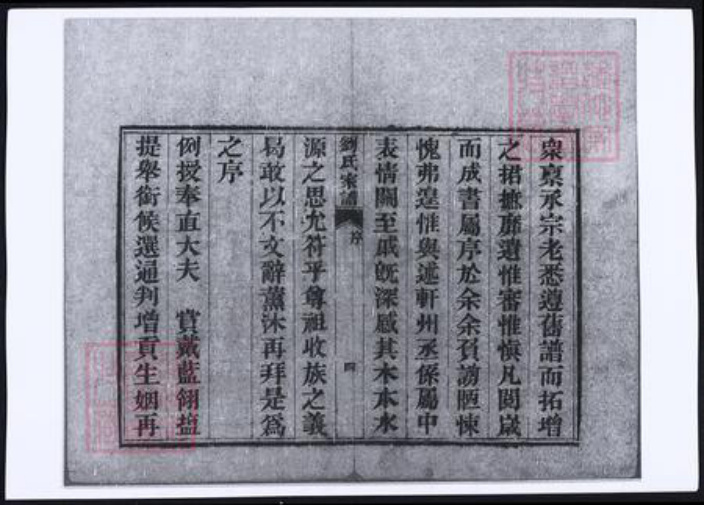 衆稟承宗老悉遵舊譜而拓增
之捃摭靡遺惟審惟愼凡閲歲
而成書屬序於余余負謭陋悚
愧弗遑惟與述軒州丞係屬中
表情關至戚旣深感其木本水
劉氏家譜 序 四
源之思尤符乎尊祖收族之義
曷敢以不文辭薰沐再拜是爲
之序
例授奉直大夫 賞戴藍翎鹽
提舉銜候選通判增貢生姻再